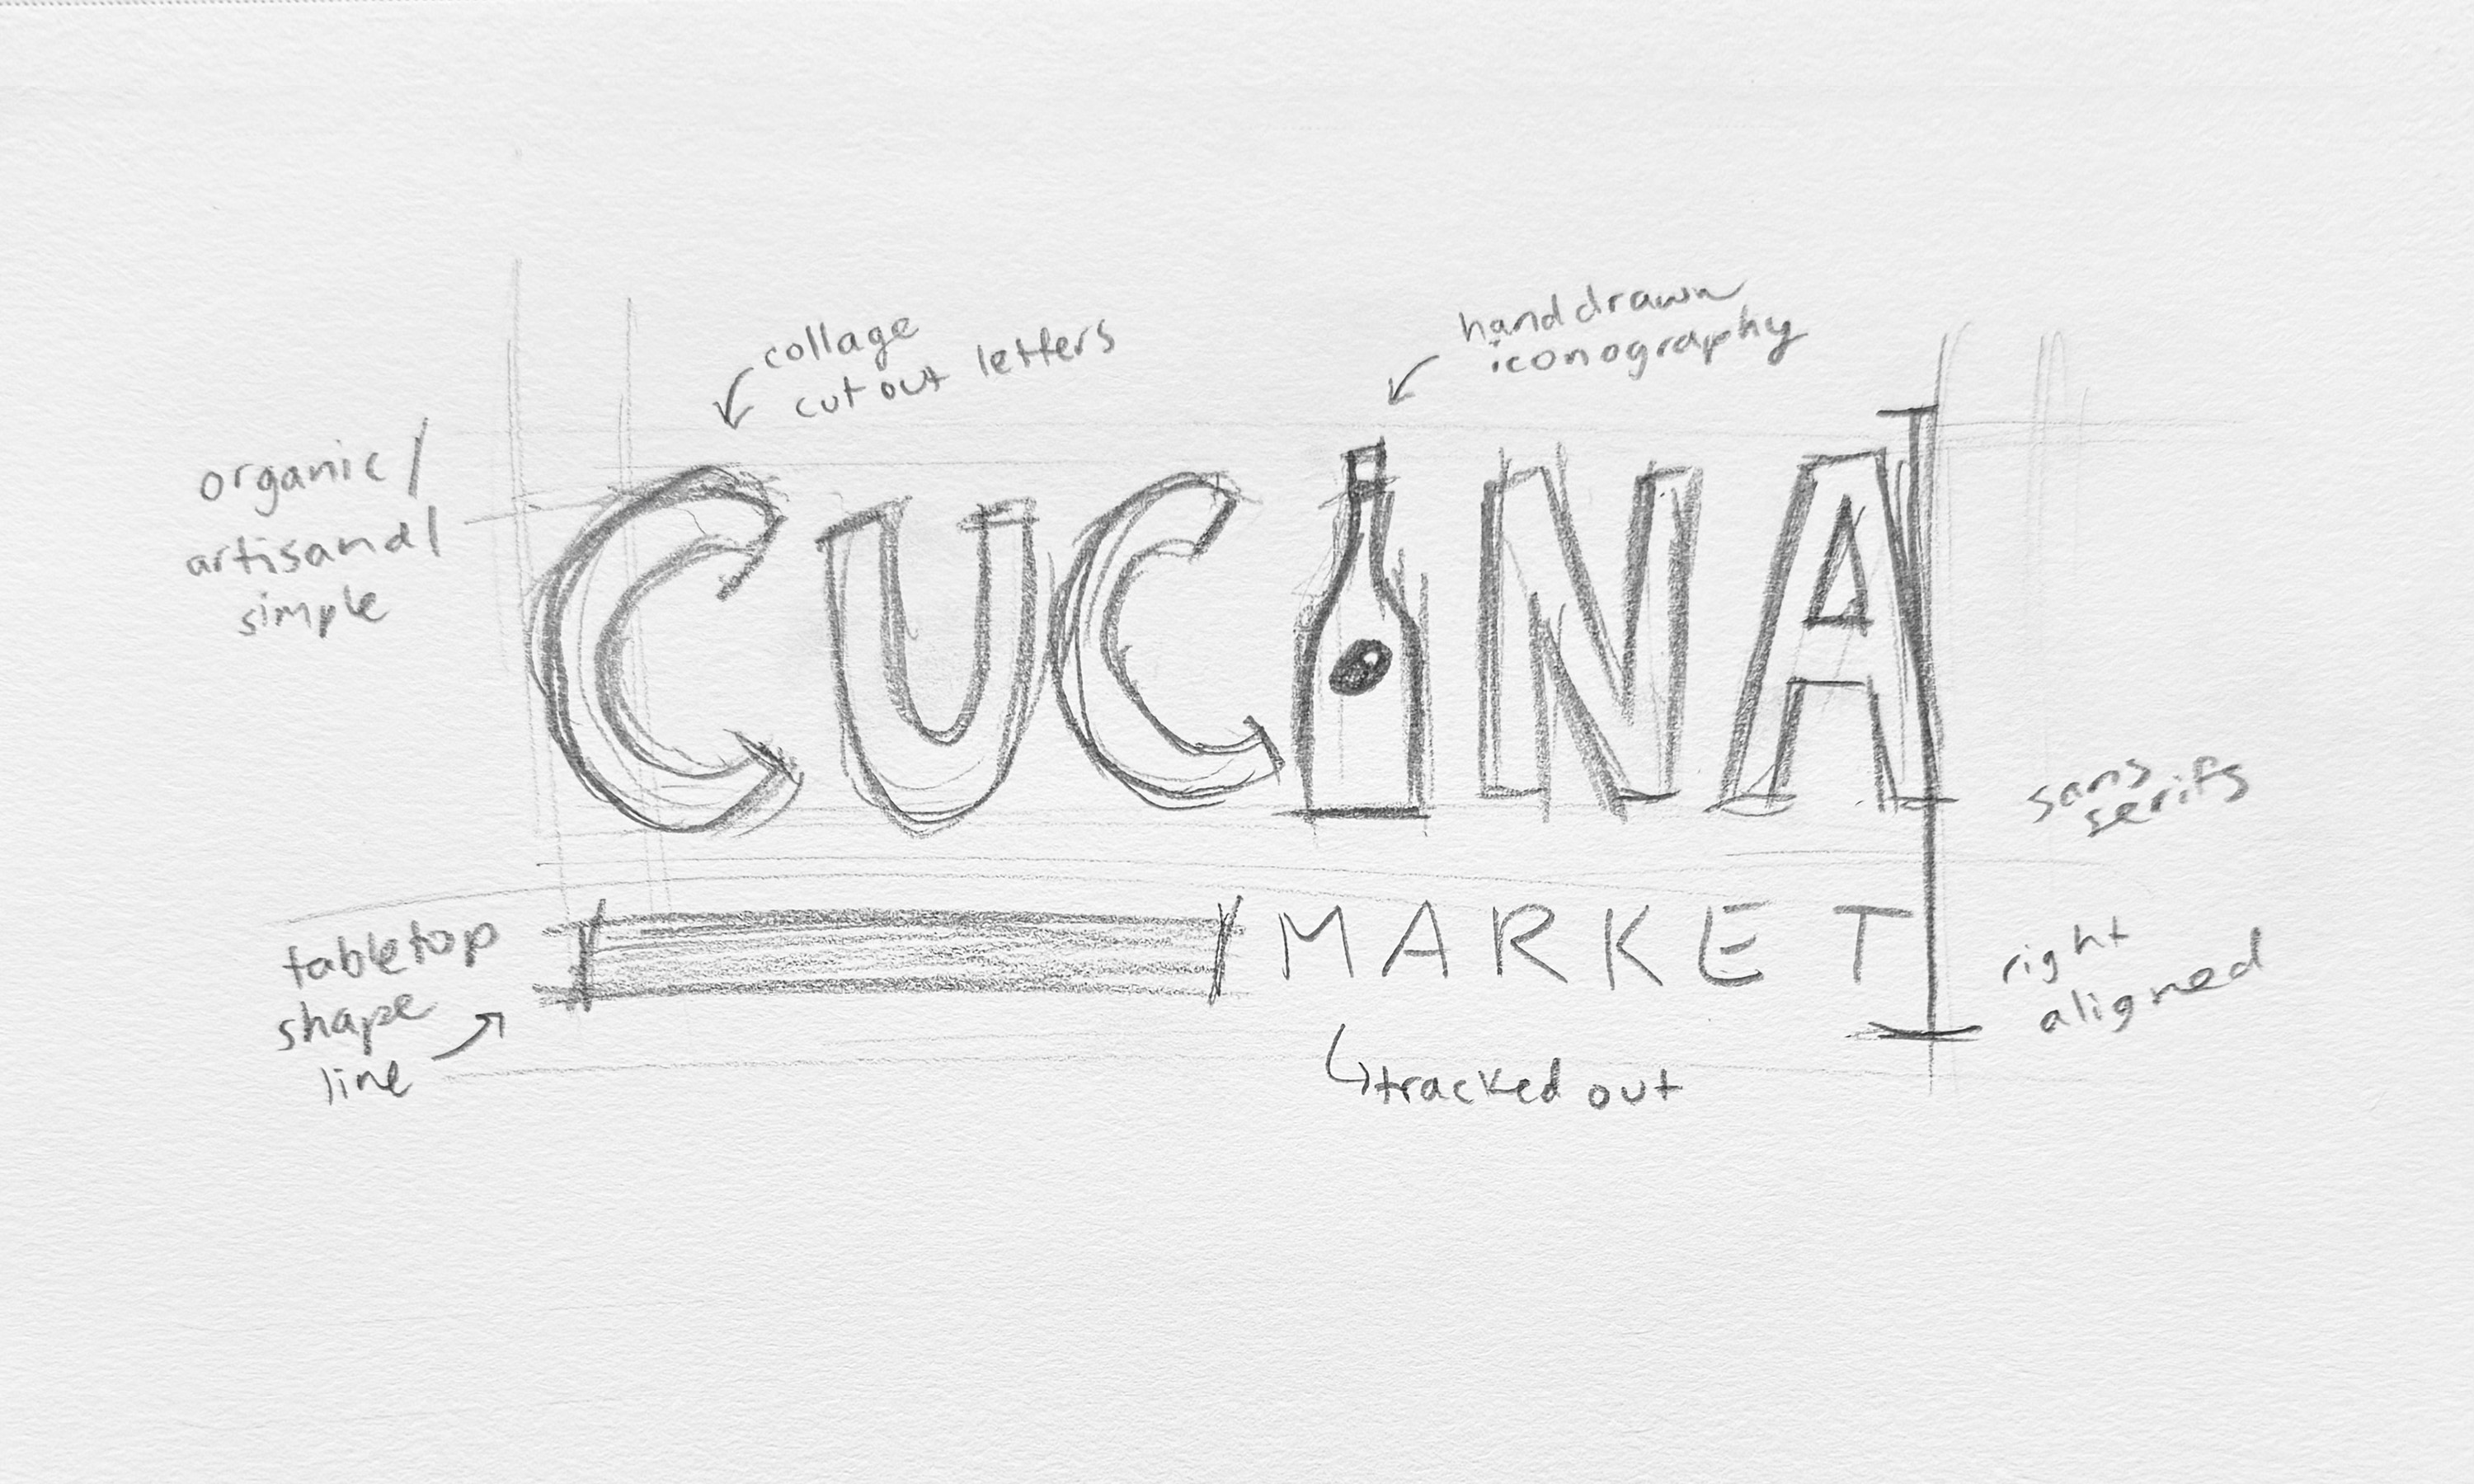 hand drawn
iconography
collage
cut out letters
organic/
artisanal/
simple
CUCINA
sans
serifs
tabletop
shape
line
MARKET
right
aligned
tracked out